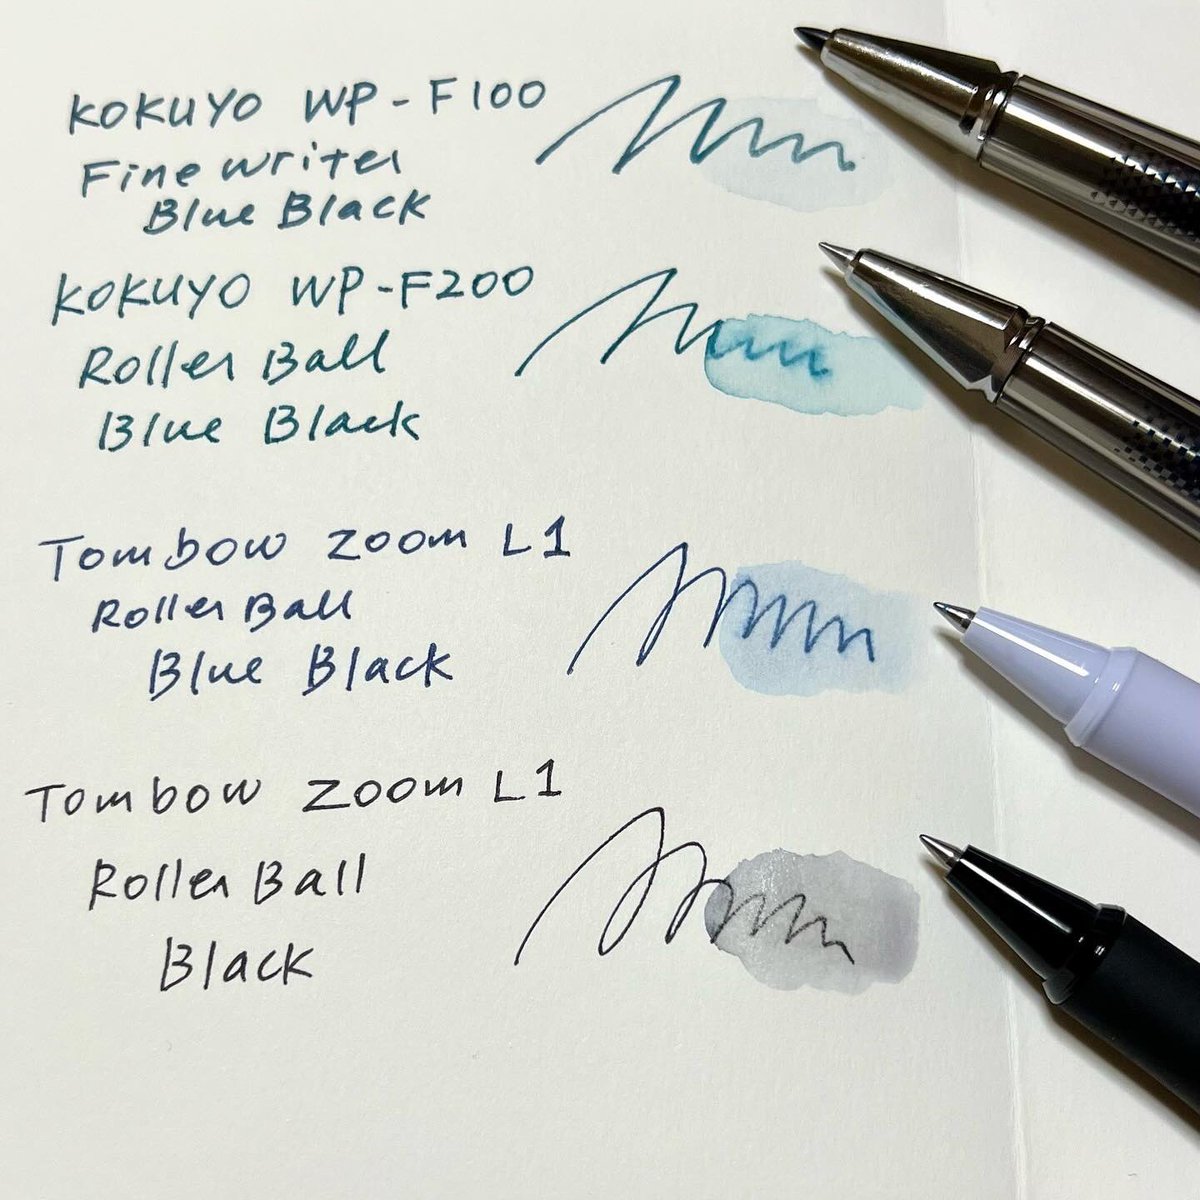 KOKUYO WP-F100
Fine writer
Blue Black
KOKUYO WP-F200
Roller Ball
Blue Black
Tombow Zoom L1
Roller Ball
Blue Black
Tombow Zoom L1
Roller Ball
Black